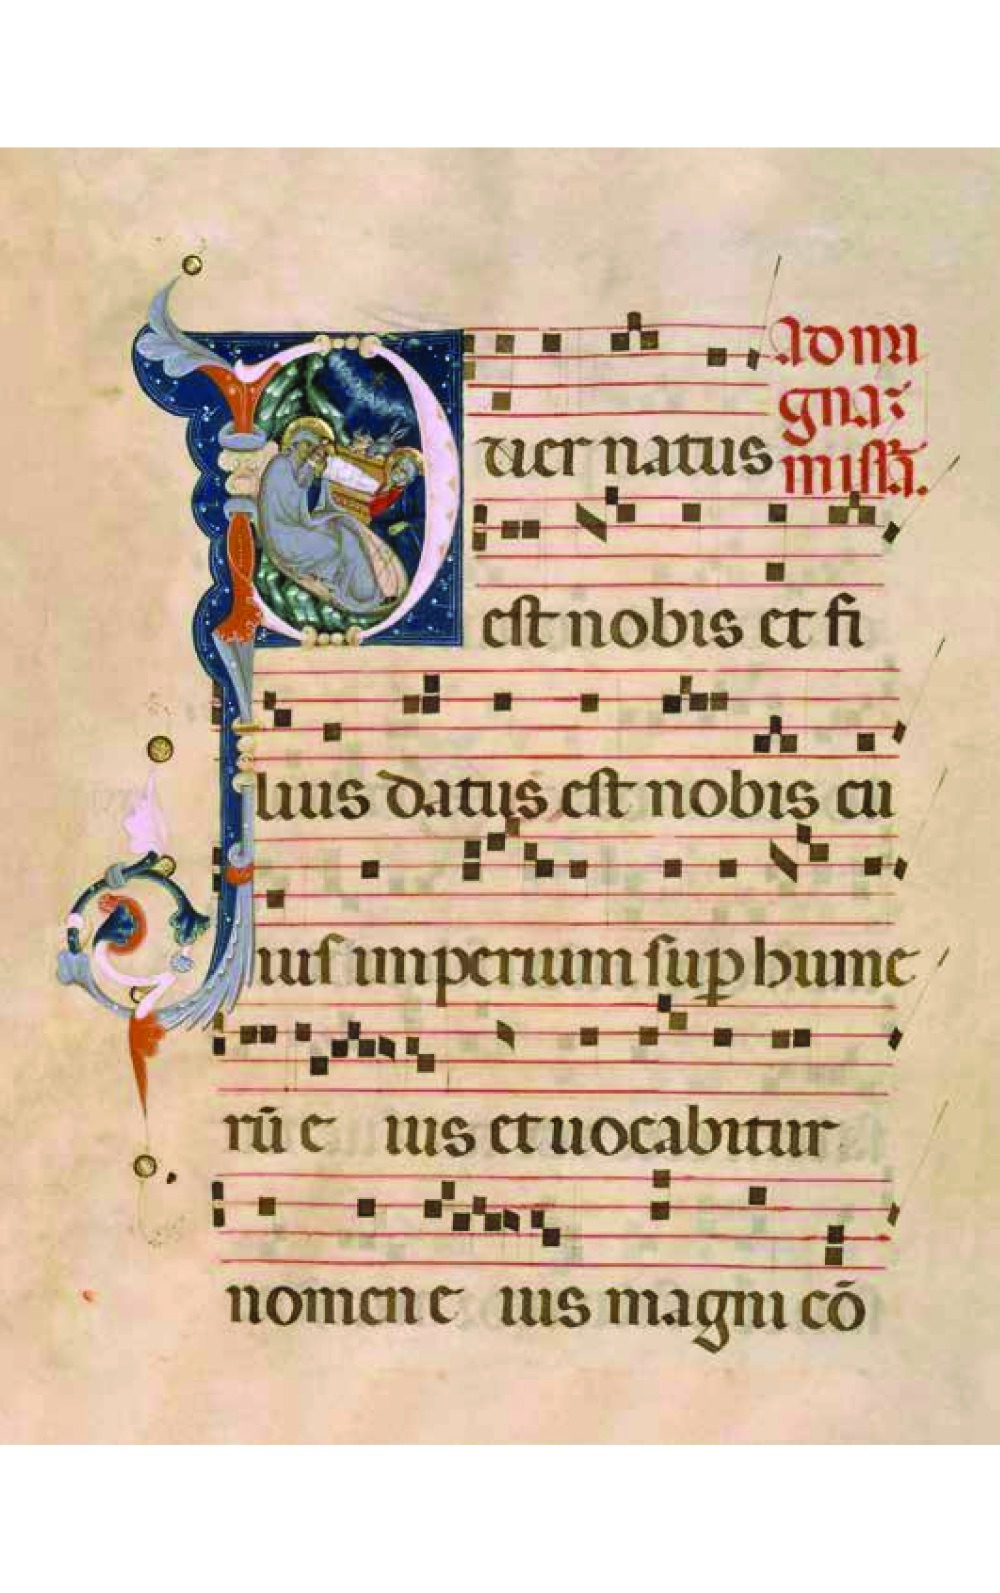 Puer natus
Ad mi
gnaz
missā.
est nobis et fi
lius datus est nobis cu
ius imperium sup hume
rū e ius et uocabitur
nomen e ius magni cō